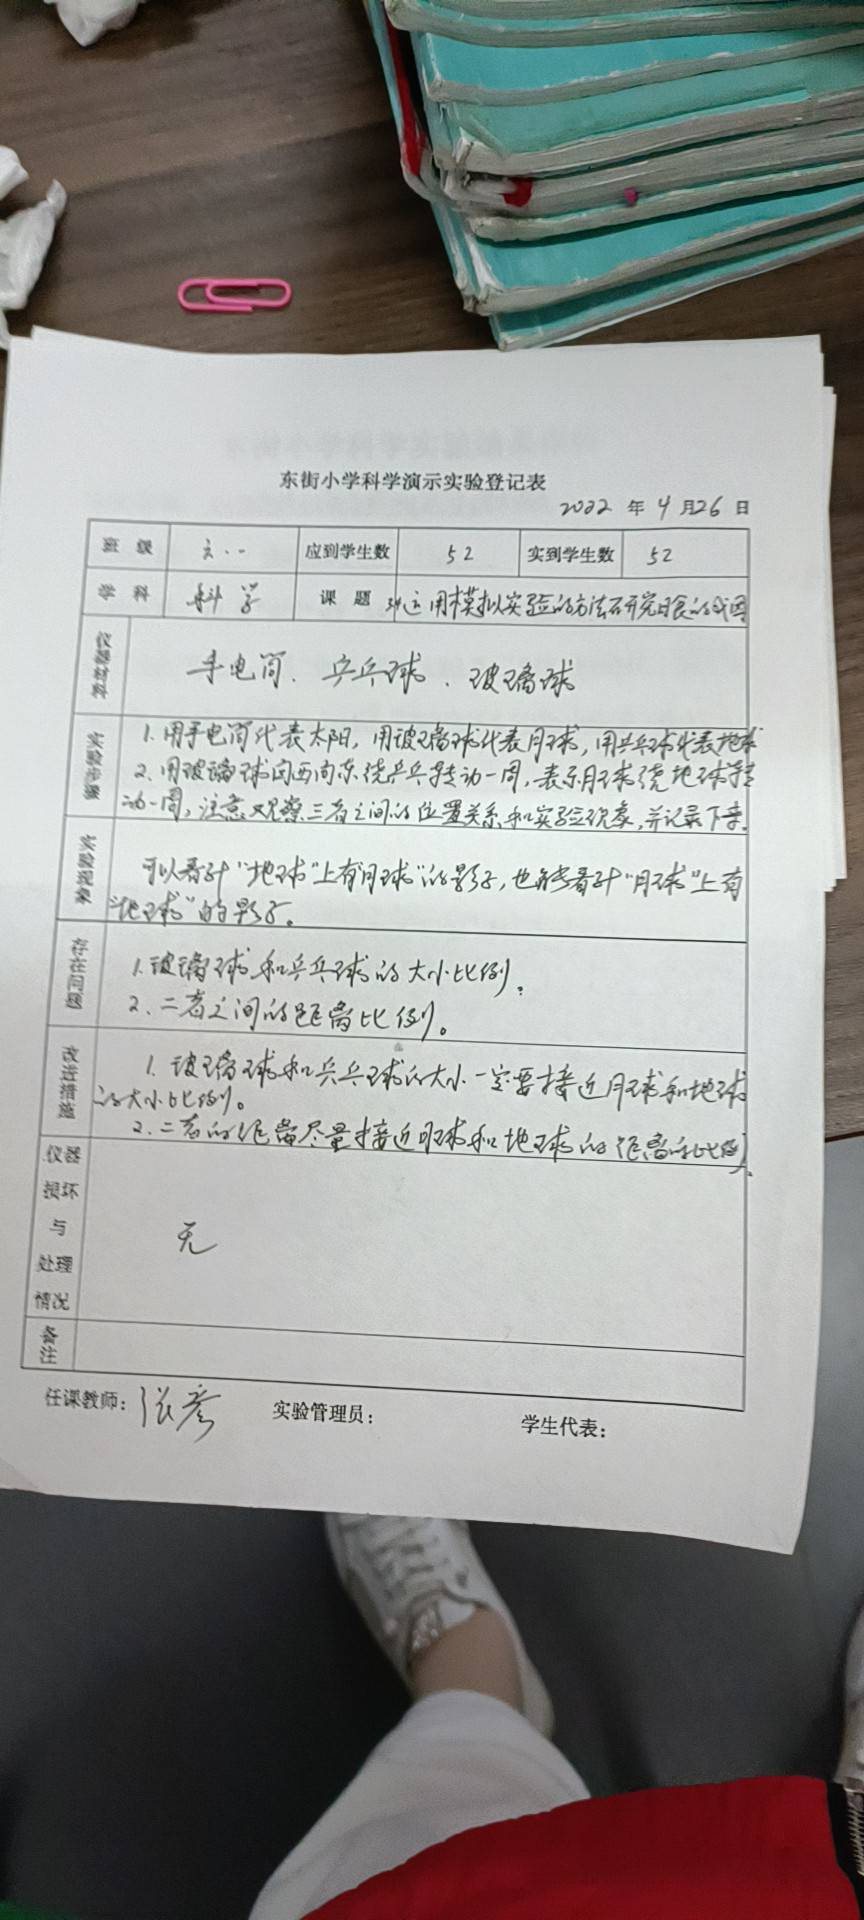 东街小学科学演示实验登记表
2022 年 4 月 26 日
班 级 六.一 应到学生数 52 实到学生数 52
学 科 科学 课 题 运用模拟实验的方法研究日食的成因
仪器材料 手电筒、乒乓球、玻璃球
实验步骤 1.用手电筒代表太阳,用玻璃球代表月球,用乒乓球代表地球
2.用玻璃球向西向东绕乒乓转动一周,表示月球绕地球转
动一周,注意观察三者之间的位置关系和实验现象,并记录下来。
实验现象 可以看到“地球”上有“月球”的影子,也能看到“月球”上有
“地球”的影子。
存在问题 1.玻璃球和乒乓球的大小比例。
2.二者之间的距离比例。
改进措施 1.玻璃球和乒乓球的大小一定要接近月球和地球
的大小比例。
2.二者的距离尽量接近月球和地球的距离的比例。
仪器
损坏
与
处理
情况
无
备注
任课教师: 张彦 实验管理员: 学生代表: